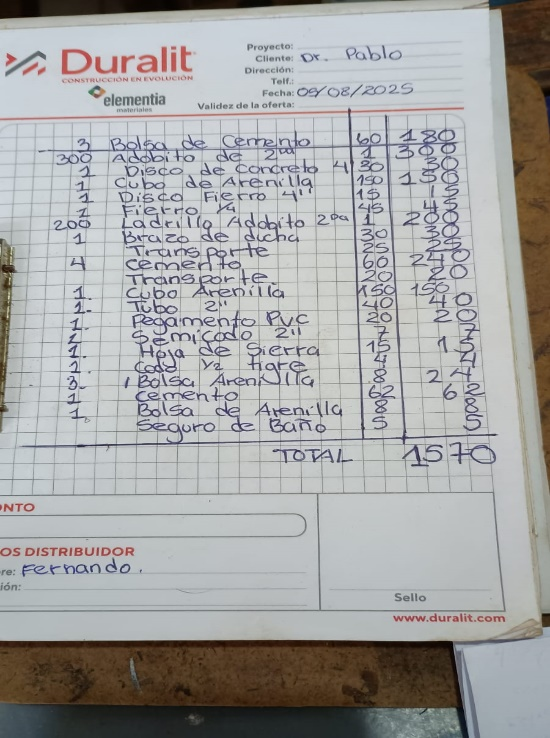 Duralit
CONSTRUCCIÓN EN EVOLUCIÓN
elementia
materiales
Proyecto:
Cliente: Dr. Pablo
Dirección:
Telf.:
Fecha: 09/08/2025
Validez de la oferta:
3 Bolsa de Cemento 60 180
300 Adobito de 2da 1 300
1 Disco de concreto 4 30 30
1 Cubo de Arenilla 150 150
1 Disco Fierro 4" 15 15
1 Fierro 1/4 45 45
200 Ladrillo Adobito 2da 1 200
1 Brazo de ducha 30 30
Transporte 25 25
4 cemento 60 240
Transporte. 20 20
1. Cubo Arenilla 150 150
1. Tubo 2" 40 40
1. Pegamento PVC 20 20
2 Semicodo 2" 7 7
1. Hoja de Sierra 15 15
2. Codo 1/2 tigre 4 4
3. 1 Bolsa Arenilla 8 24
1 cemento 62 62
1. Bolsa de Arenilla 8 8
Seguro de Baño 5 5
TOTAL 1570
NTO
OS DISTRIBUIDOR
re: Fernando.
ión:
Sello
www.duralit.com